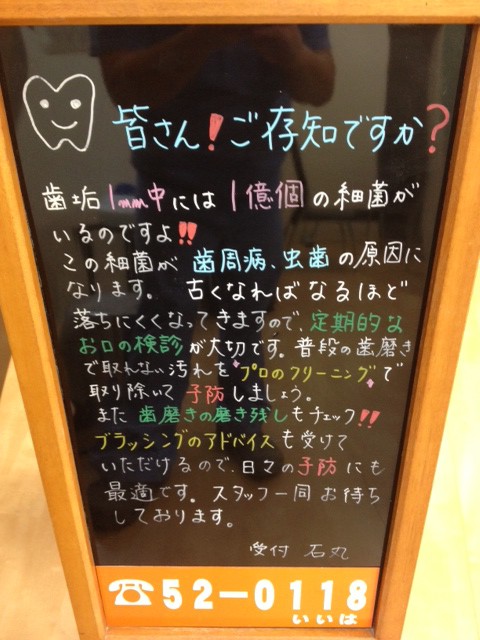 皆さん！ご存知ですか？
歯垢1mm中には1億個の細菌が
いるのですよ!!
この細菌が 歯周病、虫歯の原因に
なります。 古くなればなるほど
落ちにくくなってきますので、定期的な
お口の検診が大切です。普段の歯磨き
で取れない汚れを"プロのクリーニング"で
取り除いて予防しましょう。
また 歯磨きの磨き残しもチェック!!
ブラッシングのアドバイスも受けて
いただけるので、日々の予防にも
最適です。スタッフ一同お待ち
しております。
受付 石丸
☎52-0118
いいは